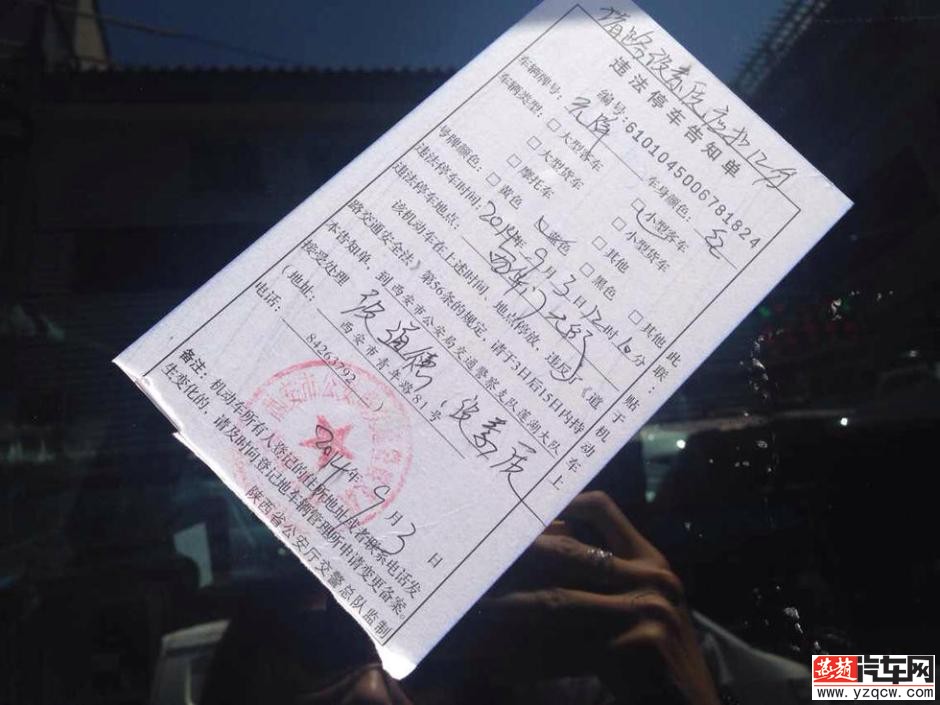 堵路没素质应扣12分
违法停车告知单
编号:6101045006781824
车辆牌号: 无牌 车身颜色: 红
车辆类型: □大型客车 □小型客车
□大型货车 □小型货车
□摩托车 □其他
号牌颜色: □黄色 □蓝色 □黑色 □其他
违法停车时间: 2014年9月3日12时10分
违法停车地点:
该机动车在上述时间、地点停放,违反了《道
路交通安全法》第56条的规定,请于3日后15日内持
本告知单,到西安市公安局交通警察支队莲湖大队
接受处理
(地址: 西安市青年路81号
电话: 84263792 )
没道德(没素质
西安市公安局
2014年9月3日
备注:机动车所有人登记的住所地址或者联系电话发
生变化的,请及时向登记地车辆管理所申请变更备案。
陕西省公安厅交警总队监制
此联:贴于机动车上
燕赵汽车网
www.yzqcw.com